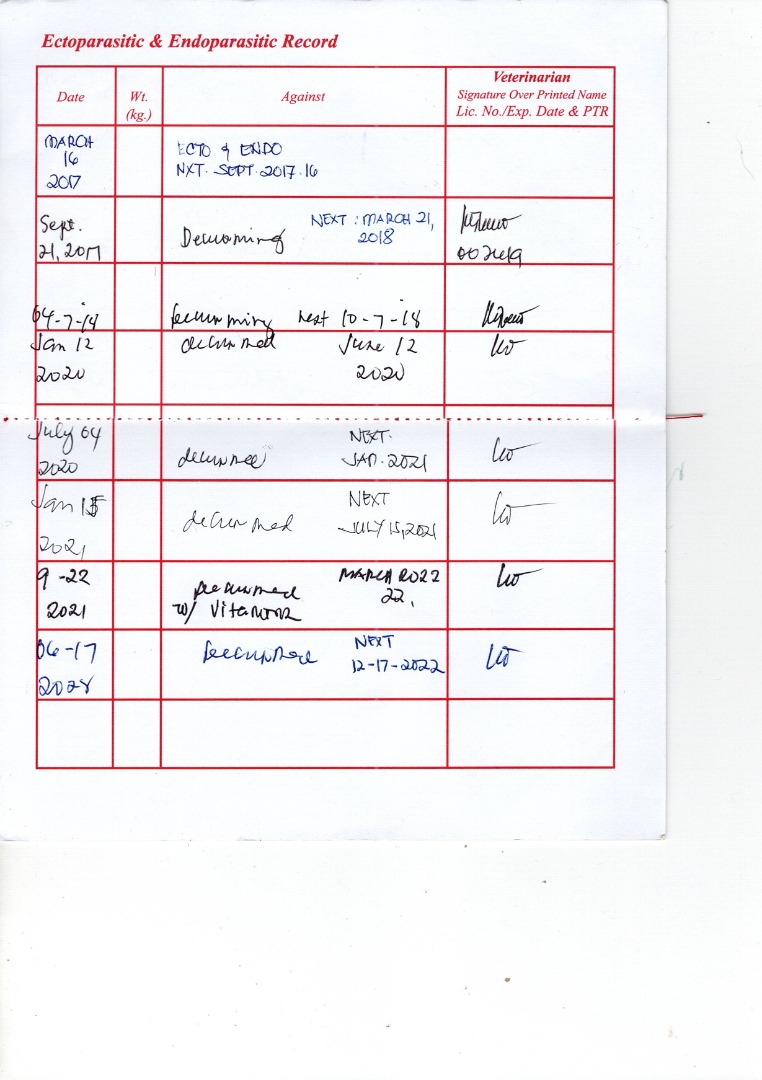 Ectoparasitic & Endoparasitic Record
Date
Wt.
(kg.)
Against
Veterinarian
Signature Over Printed Name
Lic. No./Exp. Date & PTR
MARCH
16
2017
ECTO & ENDO
NXT. SEPT. 2017. 16
Sept.
21, 2017
Deworming
NEXT : MARCH 21,
2018
04-7-18
Deworming next 10-7-18
Jan 12
2020
dewormed
June 12
2020
July 04
2020
dewormed
NEXT
JAN. 2021
Jan 15
2021
dewormed
NEXT
JULY 15, 2021
9-22
2021
Dewormed
w/ Vitamin
MARCH 2022
22,
06-17
Dewormed
NEXT
12-17-2022